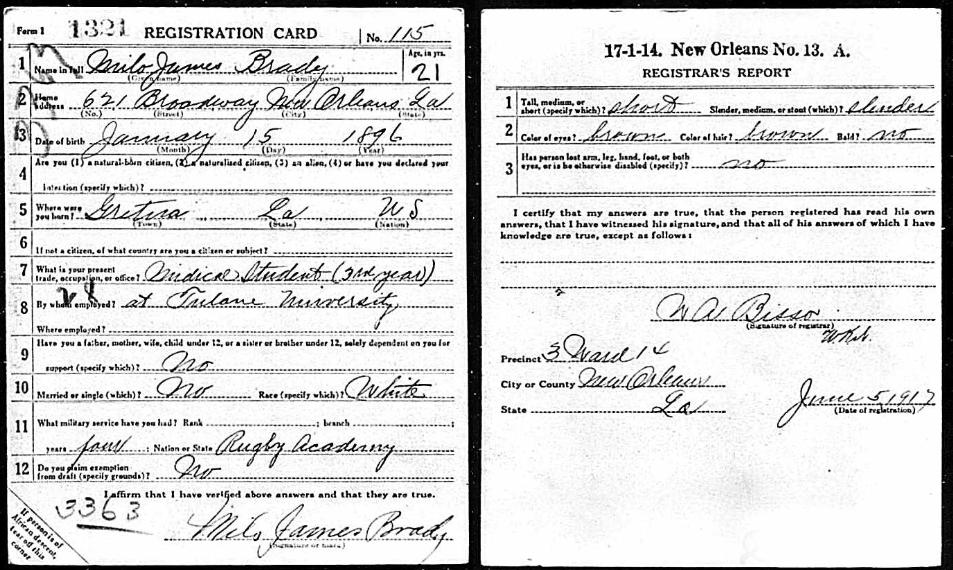 Form 1 1321 REGISTRATION CARD No. 115
1 Name in full Milo James Brady Age, in yrs. 21
(Given name) (Family name)
2 Home address 621 Broadway New Orleans La
(No.) (Street) (City) (State)
3 Date of birth January 15 1896
(Month) (Day) (Year)
4 Are you (1) a natural-born citizen, (2) a naturalized citizen, (3) an alien, (4) or have you declared your
intention (specify which)?
5 Where were you born? Gretna La US
(Town) (State) (Nation)
6 If not a citizen, of what country are you a citizen or subject?
7 What is your present trade, occupation, or office? Medical Student (3rd year)
28
8 By whom employed? at Tulane University
Where employed?
9 Have you a father, mother, wife, child under 12, or a sister or brother under 12, solely dependent on you for
support (specify which)? No
10 Married or single (which)? No Race (specify which)? White
11 What military service have you had? Rank ; branch ;
years four ; Nation or State Rugby Academy
12 Do you claim exemption from draft (specify grounds)? No
I affirm that I have verified above answers and that they are true.
3363
Milo James Brady
(Signature or mark)
If person is of African descent, tear off this corner
17-1-14. New Orleans No. 13. A.
REGISTRAR'S REPORT
1 Tall, medium, or short (specify which)? short Slender, medium, or stout (which)? slender
2 Color of eyes? brown Color of hair? brown Bald? no
3 Has person lost arm, leg, hand, foot, or both eyes, or is he otherwise disabled (specify)? no
I certify that my answers are true, that the person registered has read his own
answers, that I have witnessed his signature, and that all of his answers of which I have
knowledge are true, except as follows:
W A Bisso
(Signature of registrar)
Precinct 3 Ward 14
City or County New Orleans
State La June 5, 1917
(Date of registration)